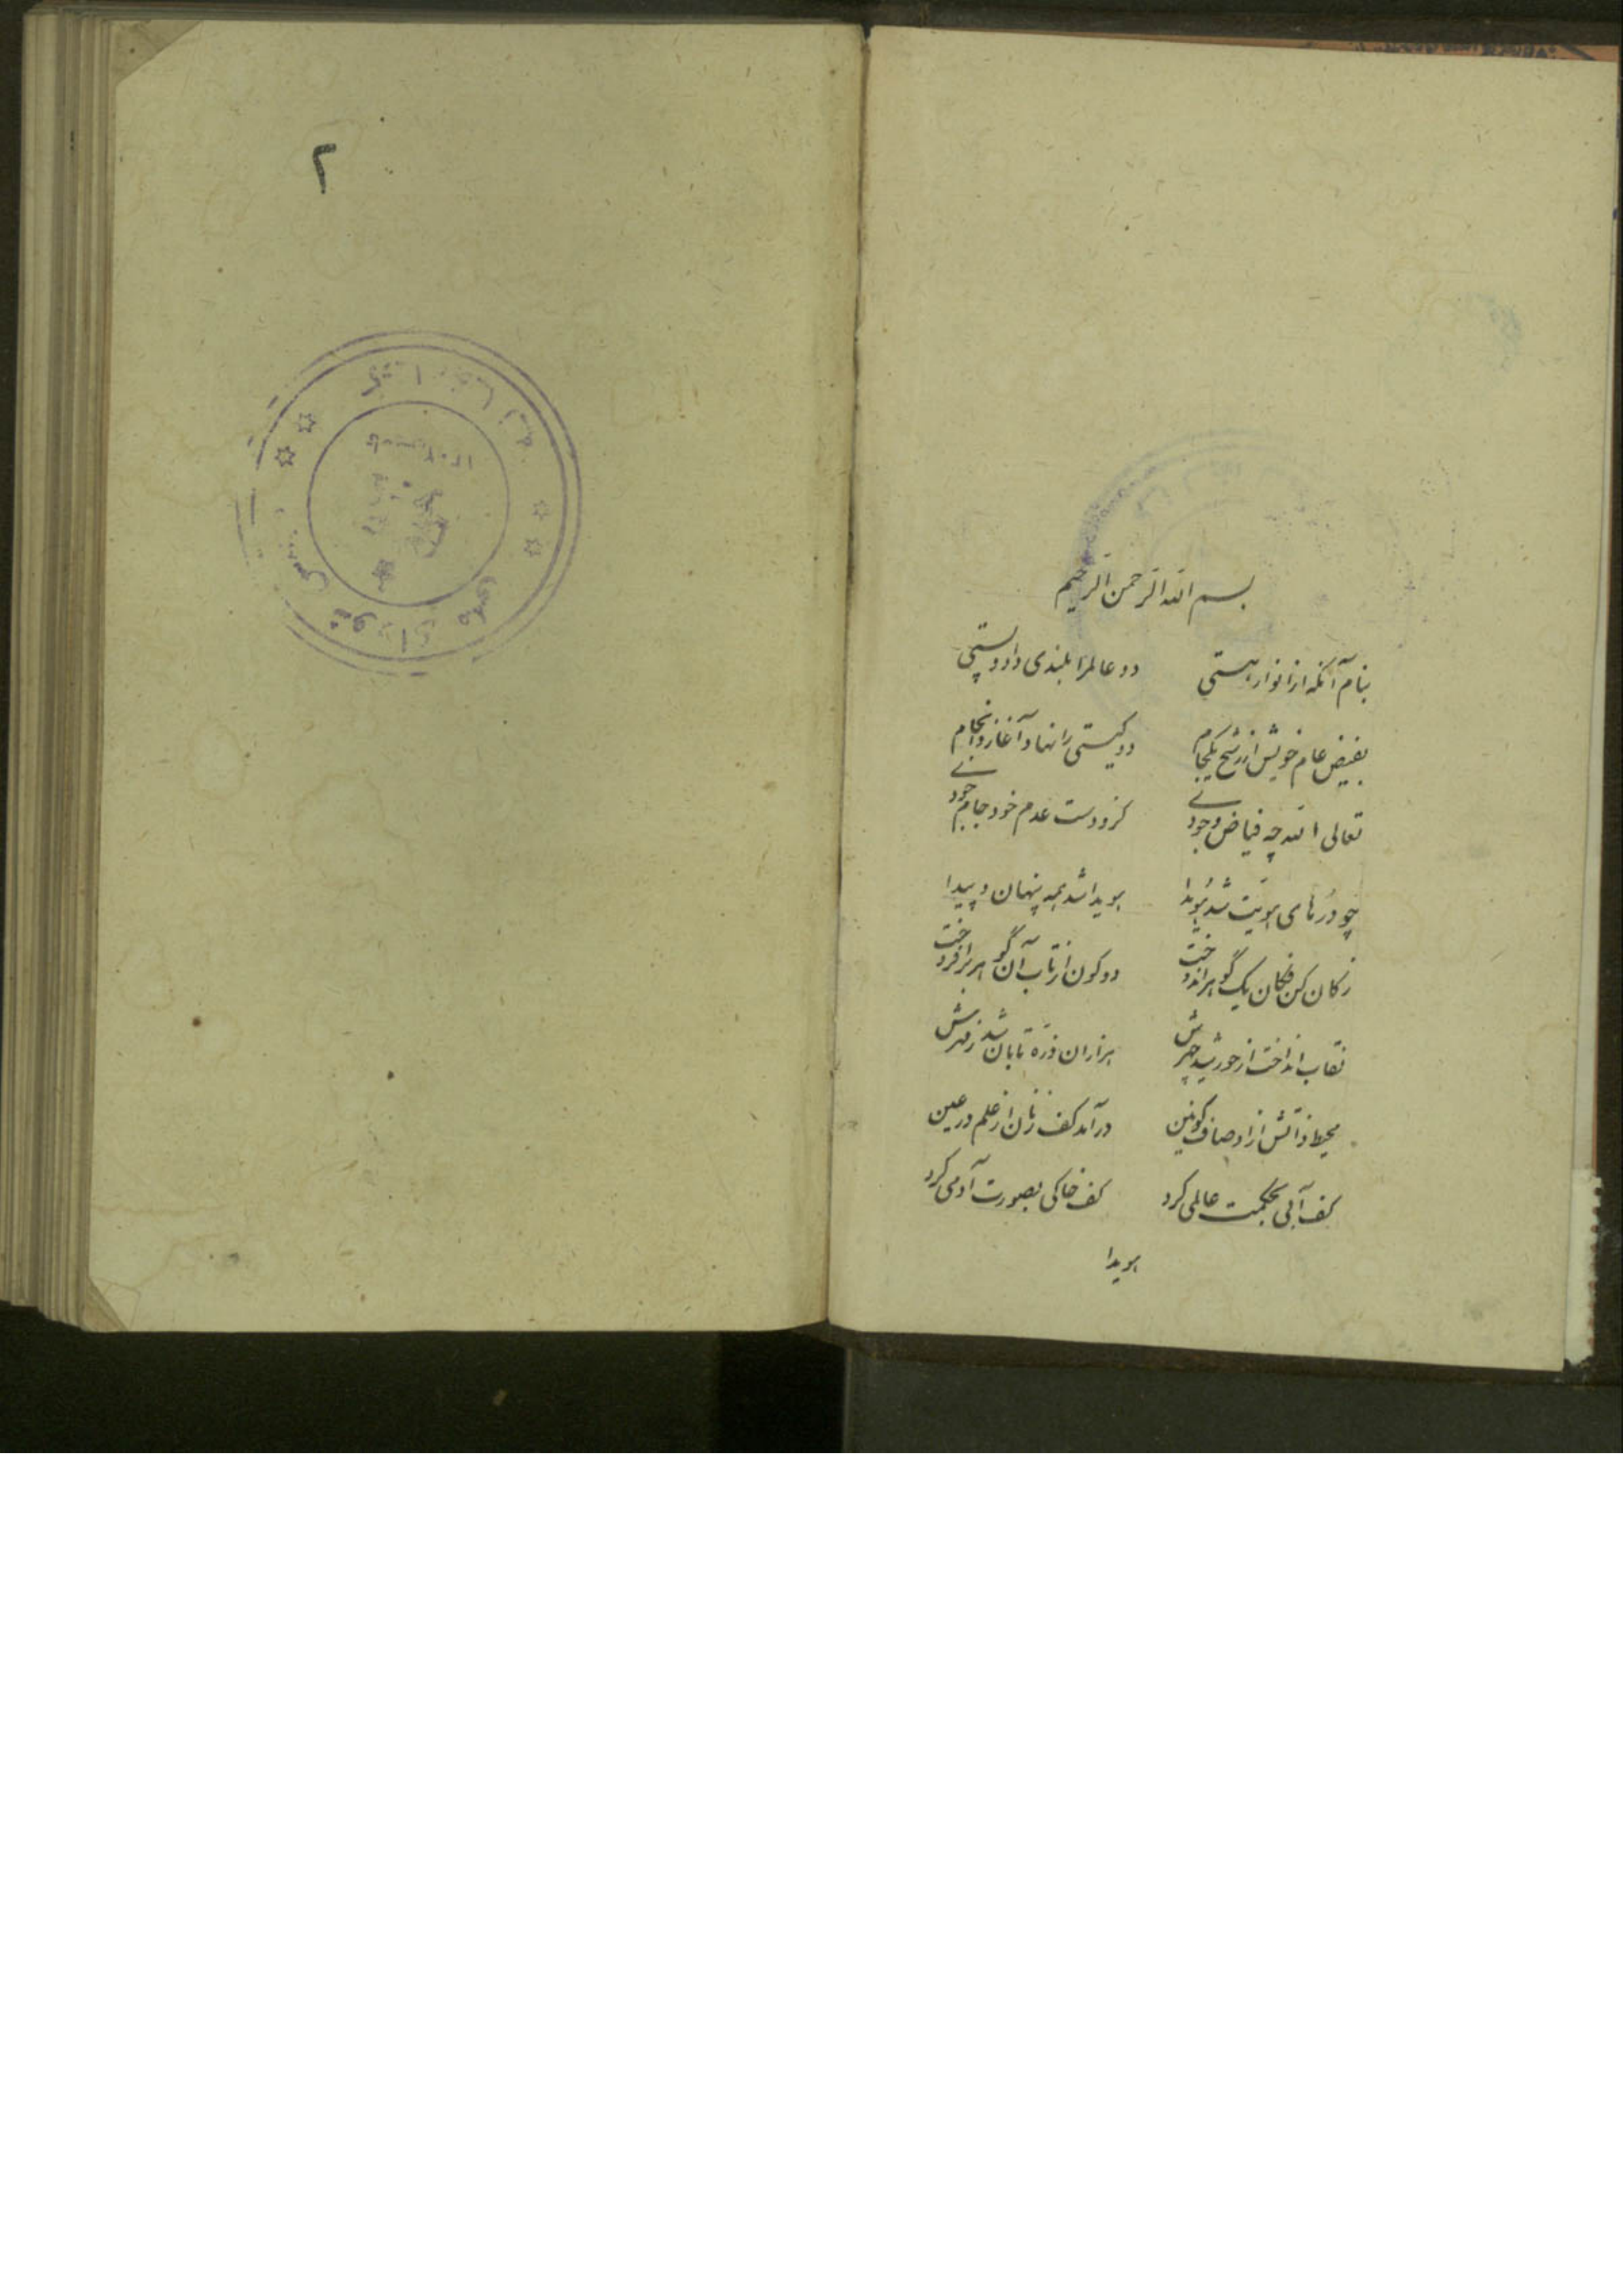 بسم الله الرحمن الرحیم
بنام آنکه از انوار هستی دو عالمرا بلندی داد و پستی
بفیض عام خویش از رشح یکجام دو گیتی را نهاد آغاز و انجام
تعالی الله چه فیاض وجودی کزو دست عدم خود جام جودی
چو دُرهای هویّت شد هُویدا هویدا شد همه پنهان و پیدا
ز کان کن فکان یک گوهر اندوخت دو کون از تاب آن گوهر برافروخت
نقاب انداخت از خورشید چهرش هزاران ذرّه تابان شد ز مهرش
محیط ذاتش از اوصاف کونین درآمد کف زنان از علم در عین
کف آبی بحکمت عالمی کرد کف خاکی بصورت آدمی کرد
هویدا
۲
شورای ملی